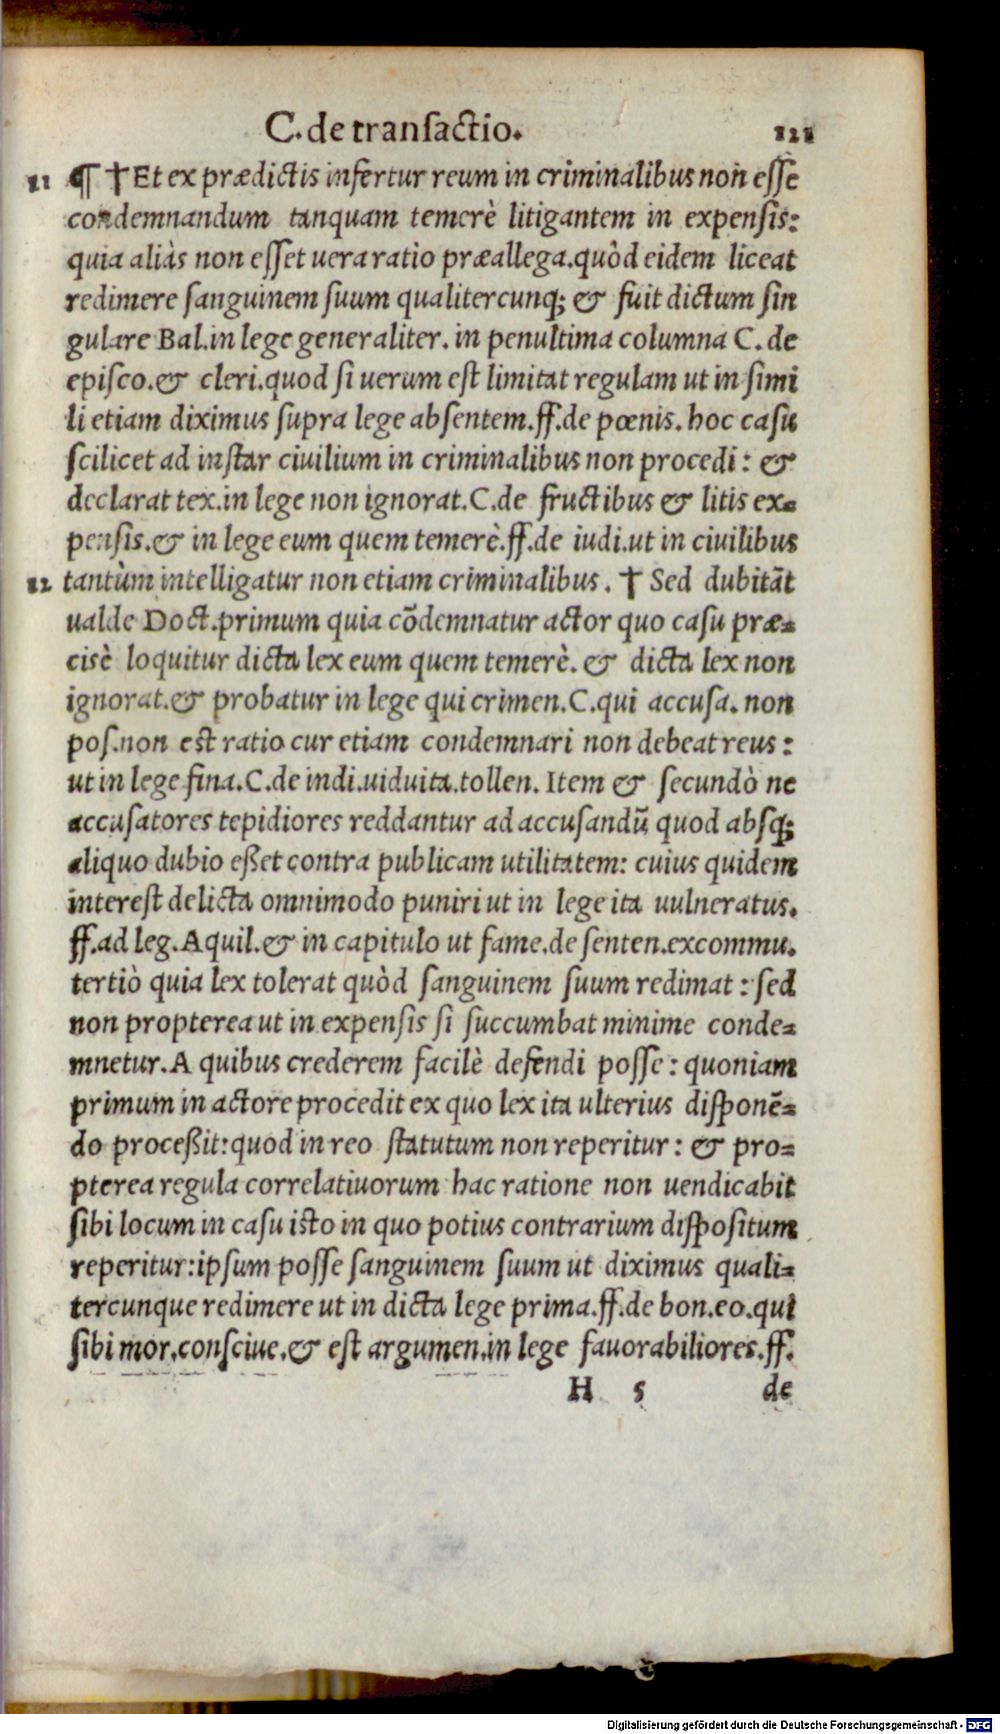 C. de transactio. 121
11 ¶ †Et ex prædictis infertur reum in criminalibus non esse
condemnandum tanquam temerè litigantem in expensis:
quia aliàs non esset uera ratio præallega. quòd eidem liceat
redimere sanguinem suum qualitercunq; & fuit dictum sin
gulare Bal. in lege generaliter. in penultima columna C. de
episco. & cleri. quod si uerum est limitat regulam ut in simi
li etiam diximus supra lege absentem. ff. de pœnis. hoc casu
scilicet ad instar ciuilium in criminalibus non procedi: &
declarat tex. in lege non ignorat. C. de fructibus & litis ex=
pensis. & in lege eum quem temerè. ff. de iudi. ut in ciuilibus
12 tantùm intelligatur non etiam criminalibus. † Sed dubitāt
ualde Doct. primum quia cōdemnatur actor quo casu præ=
cisè loquitur dicta lex eum quem temerè. & dicta lex non
ignorat. & probatur in lege qui crimen. C. qui accusa. non
pos. non est ratio cur etiam condemnari non debeat reus:
ut in lege fina. C. de indi. uiduita. tollen. Item & secundò ne
accusatores tepidiores reddantur ad accusandū quod absq;
aliquo dubio eßet contra publicam utilitatem: cuius quidem
interest delicta omnimodo puniri ut in lege ita uulneratus.
ff. ad leg. Aquil. & in capitulo ut fame. de senten. excommu.
tertiò quia lex tolerat quòd sanguinem suum redimat: sed
non propterea ut in expensis si succumbat minime conde=
mnetur. A quibus crederem facilè defendi posse: quoniam
primum in actore procedit ex quo lex ita ulterius disponē=
do proceßit: quod in reo statutum non reperitur: & pro=
pterea regula correlatiuorum hac ratione non uendicabit
sibi locum in casu isto in quo potius contrarium dispositum
reperitur: ipsum posse sanguinem suum ut diximus quali=
tercunque redimere ut in dicta lege prima. ff. de bon. eo. qui
sibi mor. consciue. & est argumen. in lege fauorabiliores. ff.
H 5 de
Digitalisierung gefördert durch die Deutsche Forschungsgemeinschaft - DFG